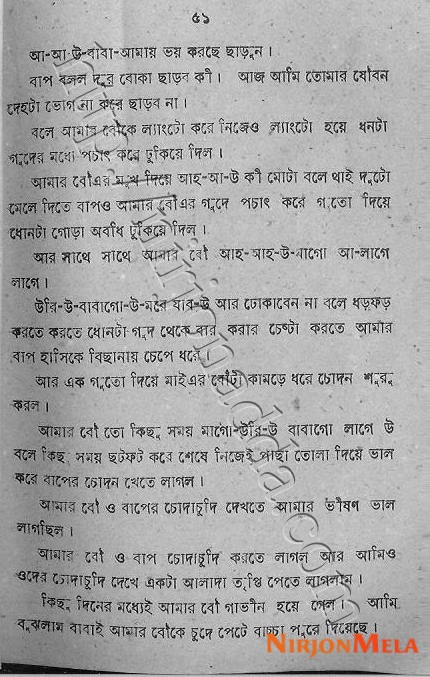 ৫১
আ-আ-উ-বাবা-আমায় ভয় করছে ছাড়ুন।
বাপ বলল দুর বোকা ছাড়ব কী। আজ আমি তোমার যৌবন
দেহটা ভোগ না করে ছাড়ব না।
বলে আমার বৌকে ল্যাংটো করে নিজেও ল্যাংটো হয়ে ধনটা
গুদের মধ্যে পচাৎ করে ঢুকিয়ে দিল।
আমার বৌএর মুখ দিয়ে আহ-আ-উ কী মোটা বলে থাই দুটো
মেলে দিতে বাপও আমার বৌএর গুদে পচাৎ করে গুতো দিয়ে
ধোনটা গোড়া অবধি ঢুকিয়ে দিল।
আর সাথে সাথে আমার বৌ আহ-আহ-উ-মাগো আ-লাগে
লাগে।
উরি-উ-বাবাগো-উ-মরে যাব-উ আর ঢোকাবেন না বলে ধড়ফড়
করতে করতে ধোনটা গুদ থেকে বার করার চেষ্টা করতে আমার
বাপ হাসিকে বিছানায় চেপে ধরে।
আর এক গুতো দিয়ে মাইএর বোঁটা কামড়ে ধরে চোদন শুরু
করল।
আমার বৌ তো কিছু সময় মাগো-উরি-উ বাবাগো লাগে উ
বলে কিছু সময় ছটফট করে শেষে নিজেই পাছা তোলা দিয়ে ভাল
করে বাপের চোদন খেতে লাগল।
আমার বৌ ও বাপের চোদাচুদি দেখতে আমার ভীষণ ভাল
লাগছিল।
আমার বৌ ও বাপ চোদাচুদি করতে লাগল আর আমিও
ওদের চোদাচুদি দেখে একটা আলাদা তৃপ্তি পেতে লাগলাম।
কিছু দিনের মধ্যেই আমার বৌ গাভীন হয়ে গেল। আমি
বুঝলাম বাবাই আমার বৌকে চুদে পেটে বাচ্চা পুরে দিয়েছে।
NIRJONMELA